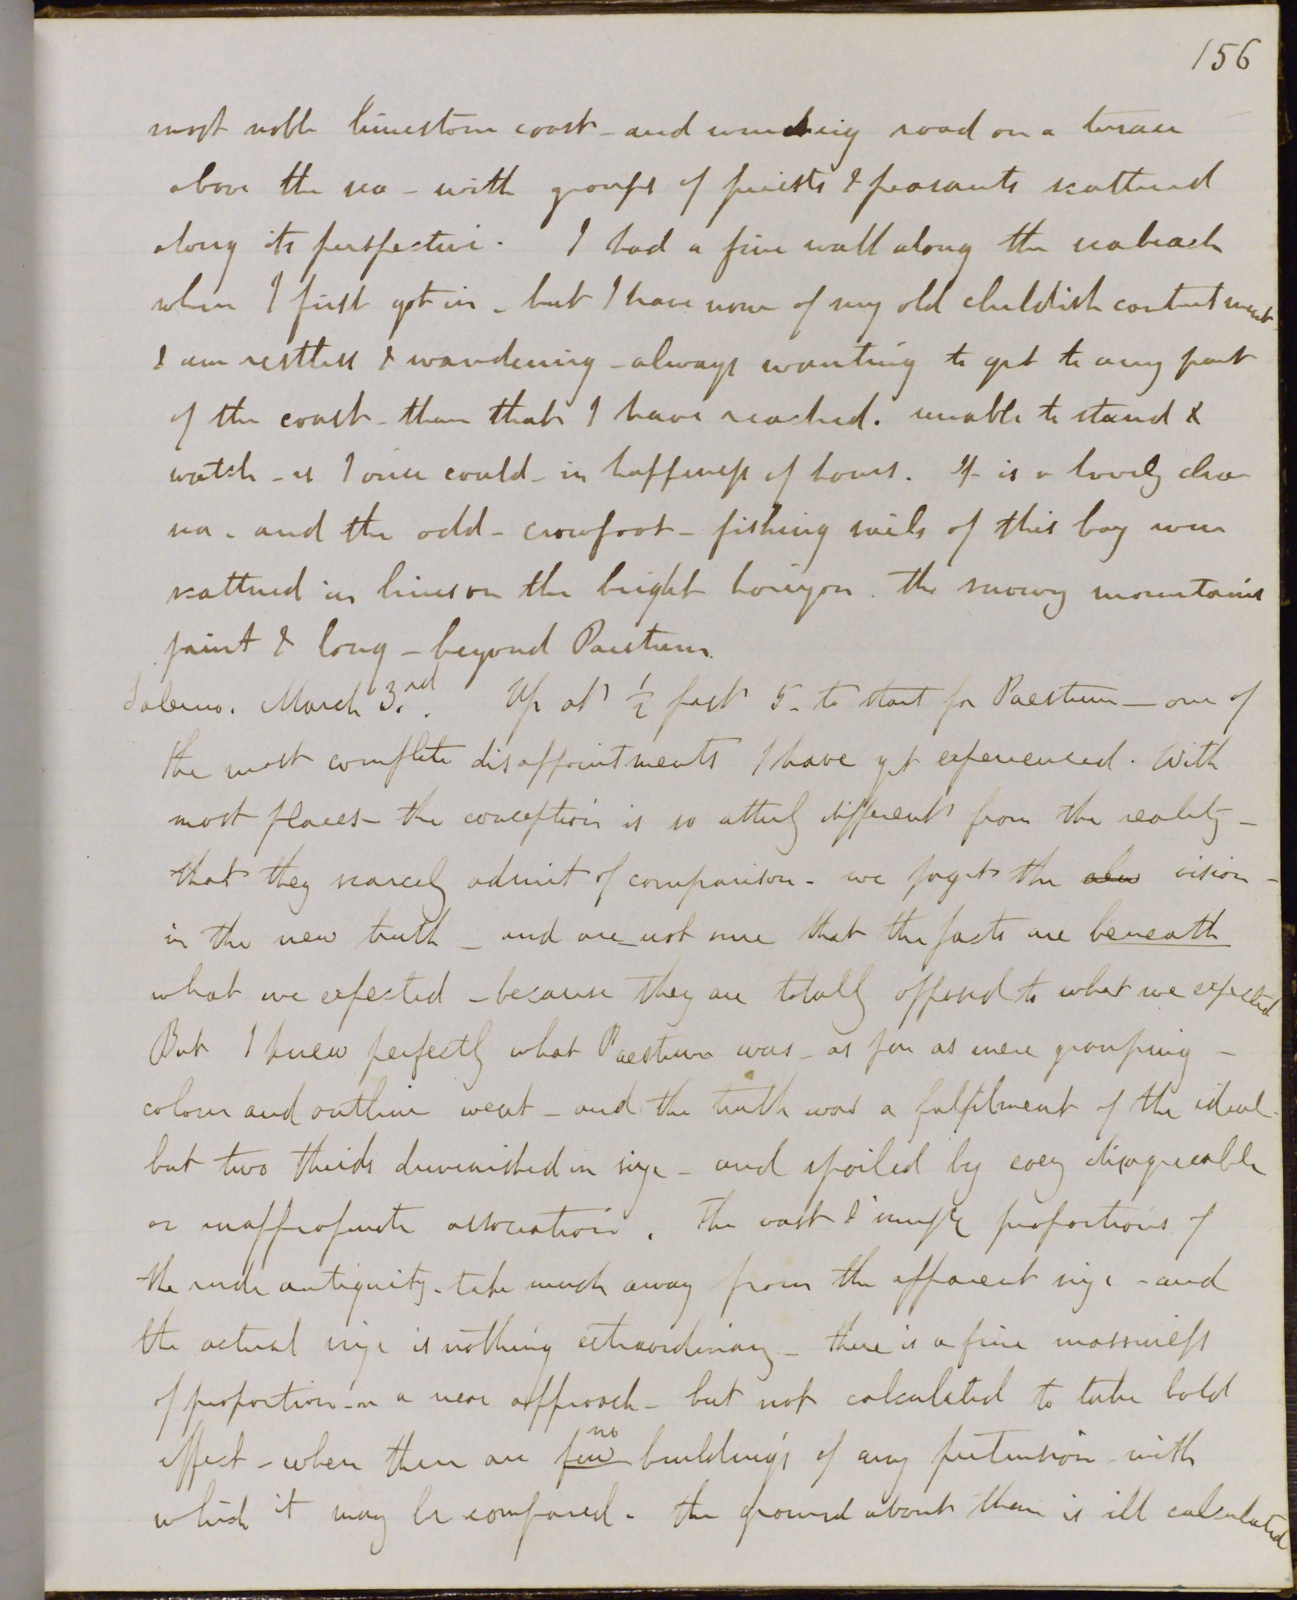 156
most noble limestone coast - and winding road on a terrace
above the sea - with groups of priests & peasants scattered
along its perspective. I had a fine walk along the seabeach
when I first got in - but I have none of my old childish contentment
I am restless & wandering - always wanting to get to any part
of the coast - than that I have reached. unable to stand &
watch - as I once could - in happiness of hours. It is a lovely clear
sea. and the odd - crowfoot - fishing sails of this bay were
scattered in lines on the bright horizon. The snowy mountains
faint & long - beyond Paestum.
Salerno. March 3.rd. Up at 1/2 past 5. to start for Paestum - one of
the most complete disappointments I have yet experienced. With
most places - the conception is so utterly different from the reality -
that they scarcely admit of comparison - we forget the vision -
in the new truth - and are not sure that the facts are beneath
what we expected - because they are totally opposed to what we expected
But I knew perfectly what Paestum was - as far as mere grouping -
colour and outline went - and the truth was a fulfilment of the ideal -
but two thirds diminished in size - and spoiled by every disagreeable
or inappropriate association. The vast & simple proportions of
the rude antiquity. take much away from the apparent size - and
the actual size is nothing extraordinary - there is a fine massiness
of proportion - on a near approach - but not calculated to take bold
effect - when there are few no buildings of any pretension with
which it may be compared. The ground about them is ill calculated